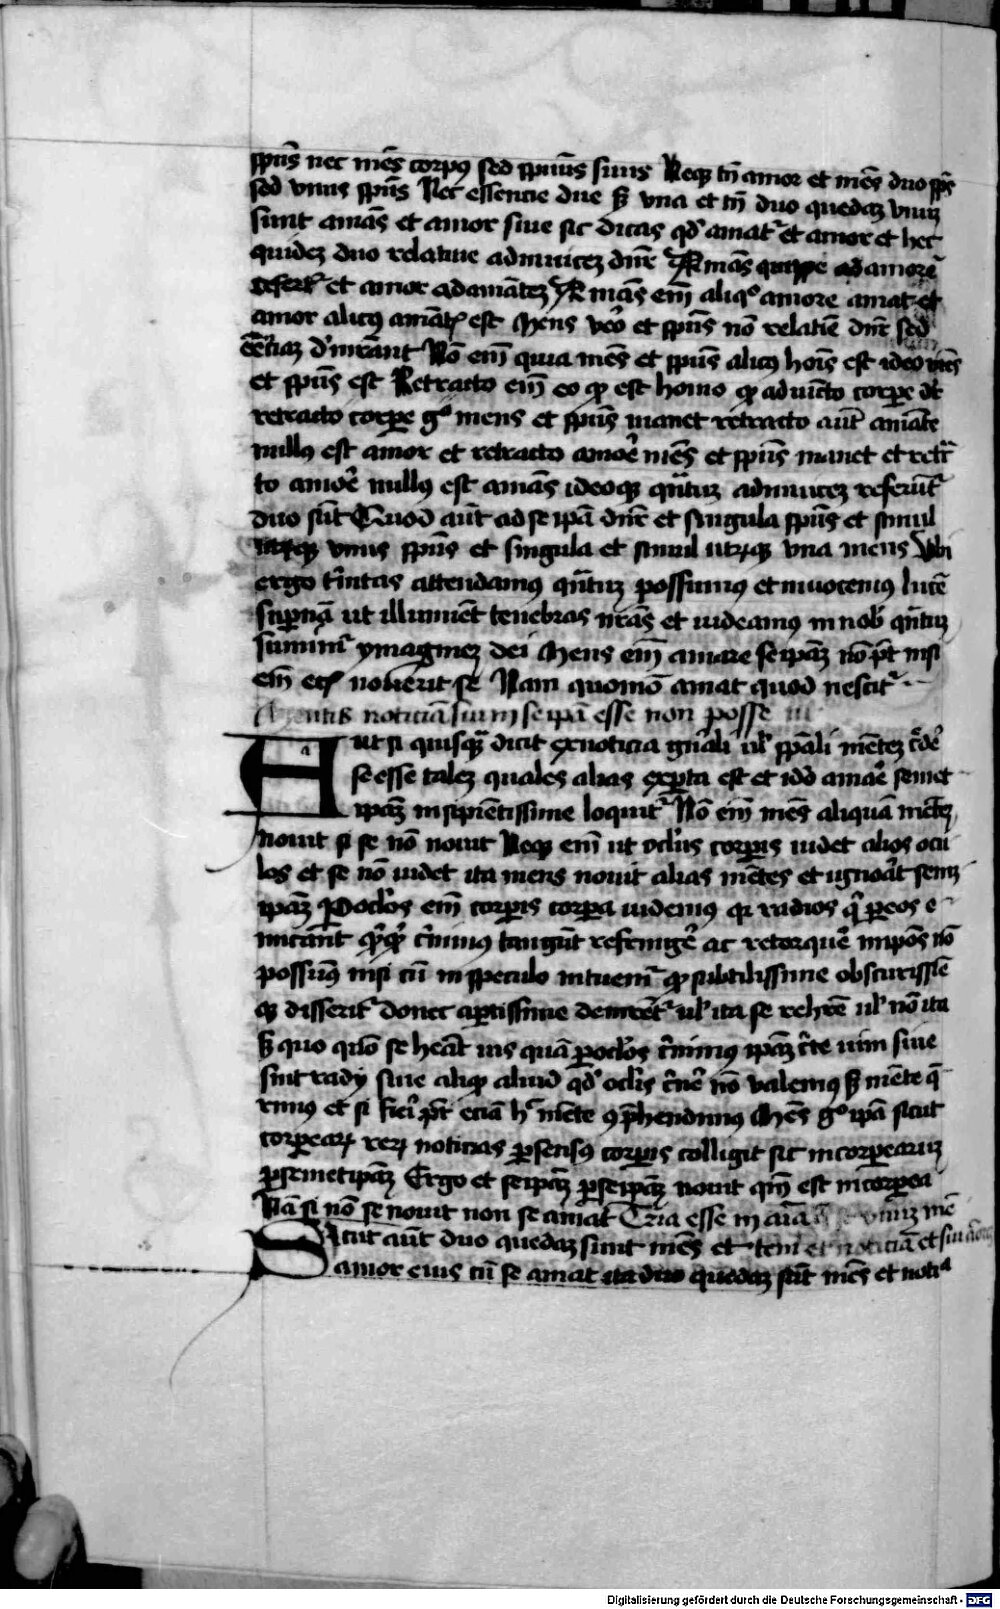 spūs nec mēs corpꝯ sed spiritūs suus Neqꝫ tn̄ amor et mēs duo spūs
sed vnus spūs Nec essencie due sꝫ vna et tn̄ duo quedaꝫ vnuꝫ
sunt amās et amor siue sic dicas qd' amat᷑ et amor et hec
quideꝫ duo relatiue adinuiceꝫ dnr̄ Amās quippe ad amorē
refert᷑ et amor ad amāteꝫ Amās em̄ aliqº amore amat et
amor alicꝯ amātꝭ est Mens vo̅ et spūs nō relatīe dnr̄ sed
eēnciaꝫ d'mrānt Nō em̄ quia mēs et spūs alicꝯ hoīs est ideo mēs
et spūs est Retracto em̄ eo qꝫ est homo qꝫ adiūcto corpe dr̄
retracto corpe gº mens et spūs manet retracto aūt amāte
nullꝯ est amor et retracto amoē mēs et spūs manet et retrac
to amoē nullꝯ est amās ideoqꝫ qn̄tuꝫ adinuiceꝫ referūt᷑
duo sūt Quod aūt ad se ipā dnr̄ et singula spūs et simul
utrqꝫ vnus spūs et singula et simul utrqꝫ vna mens Vbi
ergo t̄initas attendamꝯ qn̄tuꝫ possumꝯ et inuocemꝯ lucē
sempitn̄ā ut illumiēt tenebras nrās et uideamꝯ in nob̄ qn̄tuꝫ
sinimr᷑ ymagineꝫ dei Mens em̄ amare seipāꝫ nō pōt nisi
em̄ ecꝭ nouerit se Nam quomō amat quod nescit
Mentis noticiā sui in se ipā esse non posse
Aut si quisq̄ dicit ex noticia gn̄ali ul' spāli mēteꝫ c̄de'
se esse taleꝫ quales alias exp̄ta est et iddo amāe semet
ipāꝫ insipiētissime loquit᷑ Nō em̄ mēs aliquā mēteꝫ
nouit si se nō nouit Neqꝫ em̄ ut oclus corpis uidet alios ocu
los et se nō uidet ita mens nouit alias mētes et ignoāt semꝫ
ipāꝫ P oclos em̄ corpis corpa uidemꝯ qr radios q̄ p eos e
micānt qꝫqꝫ c̄nimꝯ tangūt refringē ac retorquē in ipōs nō
possumꝯ nisi cū in speculo intuem᷑ qꝫ subtilissime obscurissīe
qꝫ disserit᷑ donec aptissime demr̄et᷑ ul' ita se rehrē ul' nō ita
Sꝫ quo quō se heāt uis quā p oclos c̄nimꝯ ipāꝫ c̄te uim siue
sint rady siue aliqꝫ aliud qd' oclis c̄ne' nō valemꝯ sꝫ mēte q̄
rimꝯ et si fiei pōt eciā hº mēte ꝯp̄hendimꝯ Mēs gº ipā sicut
corpearꝝ rerꝝ noticias p sensꝯ corpis colligit sic incorpearuꝫ
p semetipāꝫ Ergo et seipāꝫ p seipāꝫ nouit qm̄ est incorpea
Nā si nō se nouit non se amat Tria esse in aīa vnuꝫ mē
Sicut aūt duo quedaꝫ sunt mēs et tem et noticiā et sui amorē
amor eius cū se amat ita duo quedaꝫ sūt mēs et notiᵃ
Digitalisierung gefördert durch die Deutsche Forschungsgemeinschaft - DFG